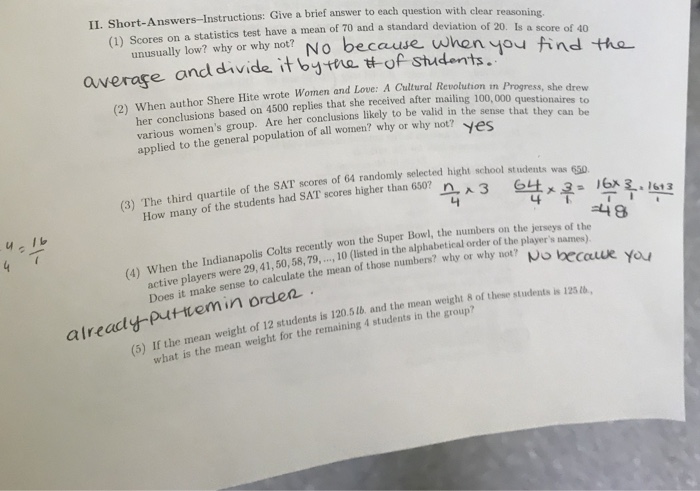 II. Short-Answers-Instructions: Give a brief answer to each question with clear reasoning.
(1) Scores on a statistics test have a mean of 70 and a standard deviation of 20. Is a score of 40
unusually low? why or why not? No because when you find the
average and divide it by the # of students.
(2) When author Shere Hite wrote Women and Love: A Cultural Revolution in Progress, she drew
her conclusions based on 4500 replies that she received after mailing 100,000 questionaires to
various women's group. Are her conclusions likely to be valid in the sense that they can be
applied to the general population of all women? why or why not? yes
(3) The third quartile of the SAT scores of 64 randomly selected hight school students was 650.
How many of the students had SAT scores higher than 650? n/4 x 3 64/4 x 3/1 = 16x3/1 1
=48
4 = 16/1
4
(4) When the Indianapolis Colts recently won the Super Bowl, the numbers on the jerseys of the
active players were 29, 41, 50, 58, 79, ..., 10 (listed in the alphabetical order of the player's names).
Does it make sense to calculate the mean of those numbers? why or why not? No because you
already put them in order.
(5) If the mean weight of 12 students is 120.5 lb. and the mean weight 8 of these students is 125 lb.,
what is the mean weight for the remaining 4 students in the group?